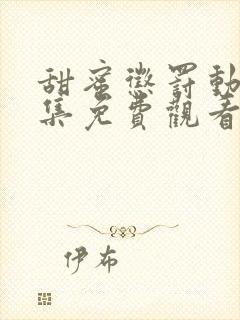 甜蜜懲罰動
集免費觀看
伊布